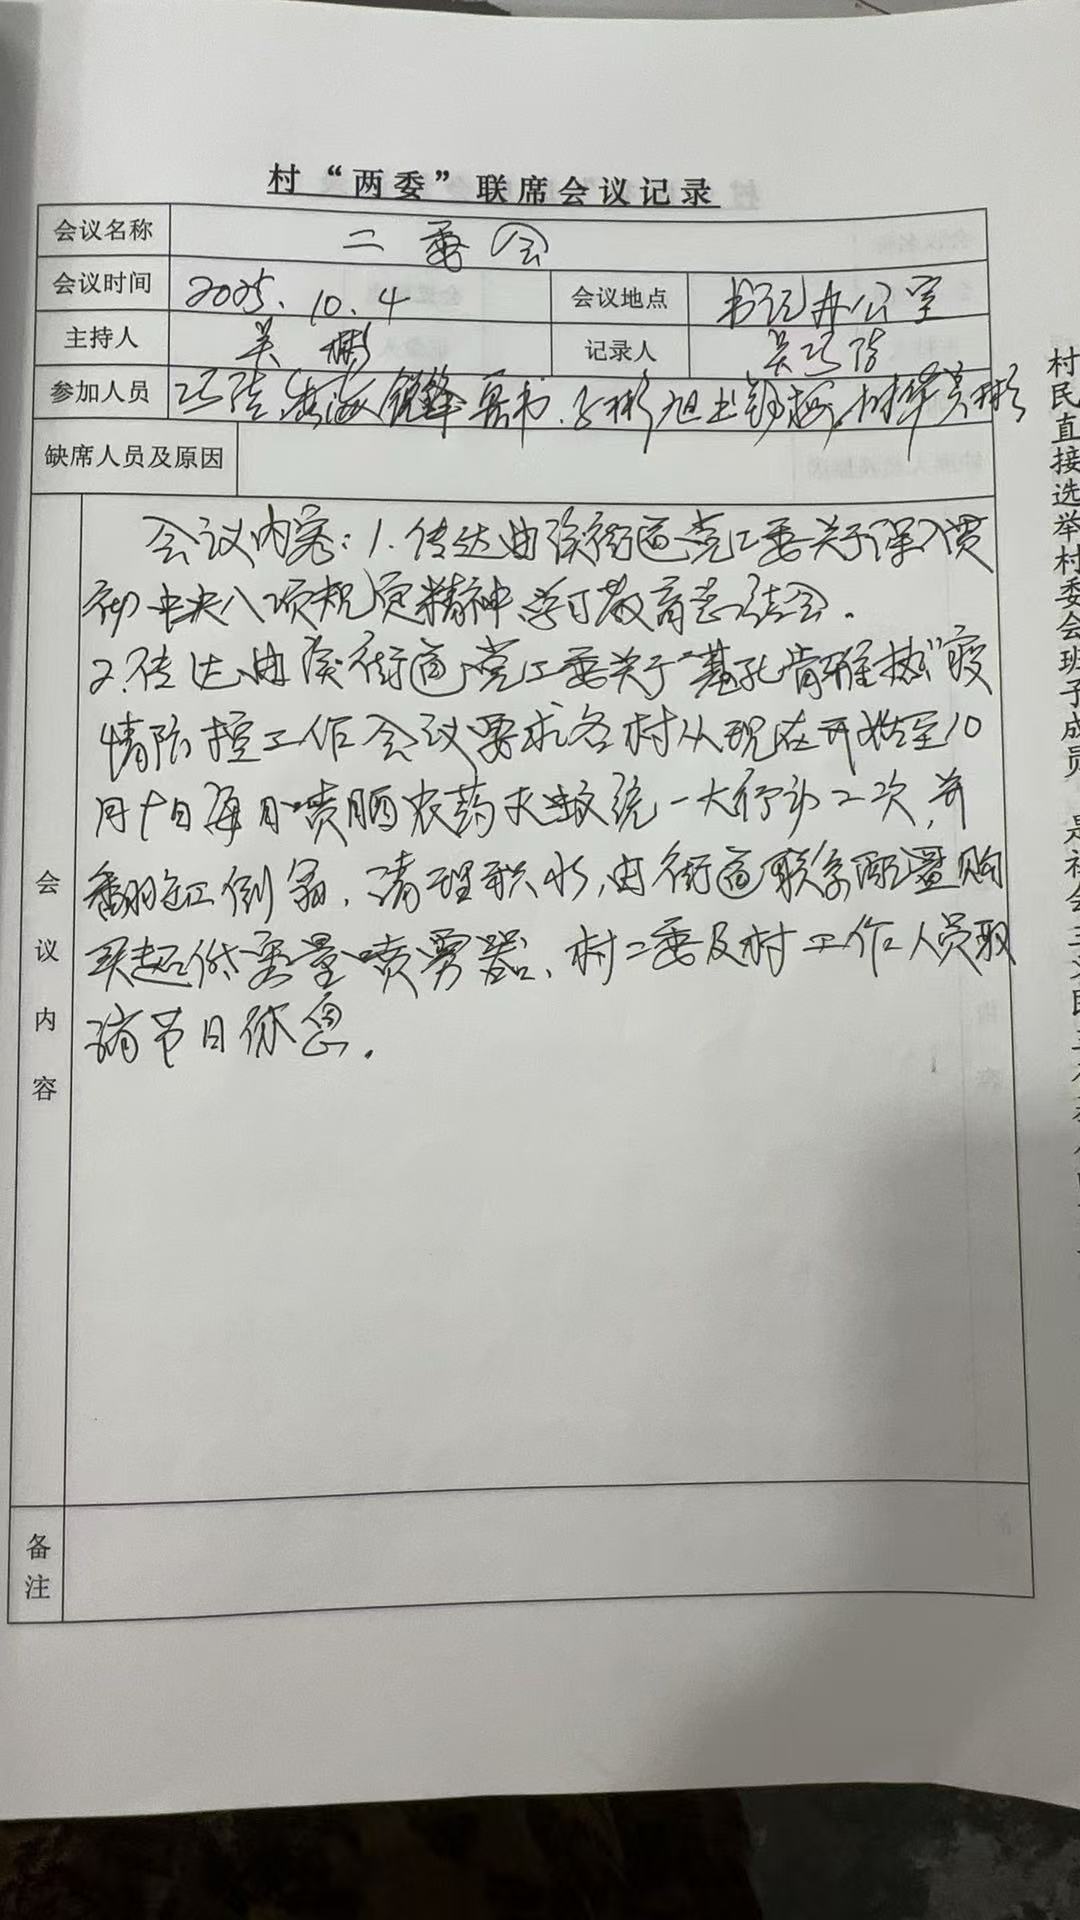 村“两委”联席会议记录
会议名称 二委会
会议时间 2025.10.4 会议地点 书记办公室
主持人 吴彬 记录人 吴巧
参加人员 巧 海 锐锋 彬 旭 彬
缺席人员及原因
会议内容
会议内容：1.传达曲溪街道党工委关于深入贯
彻中央八项规定精神学习教育总结会.
2.传达曲溪街道党工委关于“基孔肯雅热”疫
情防控工作会议要求各村从现在开始至10
月十日每日喷洒农药灭蚊统一大行动二次,并
翻缸倒,清理积水,由街道联系 购
买超低容量喷雾器、村二委及村工作人员取
消节日休息.
备注
村民直接选举村委会班子成员